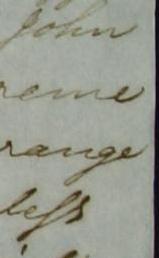 John
reme
range
less